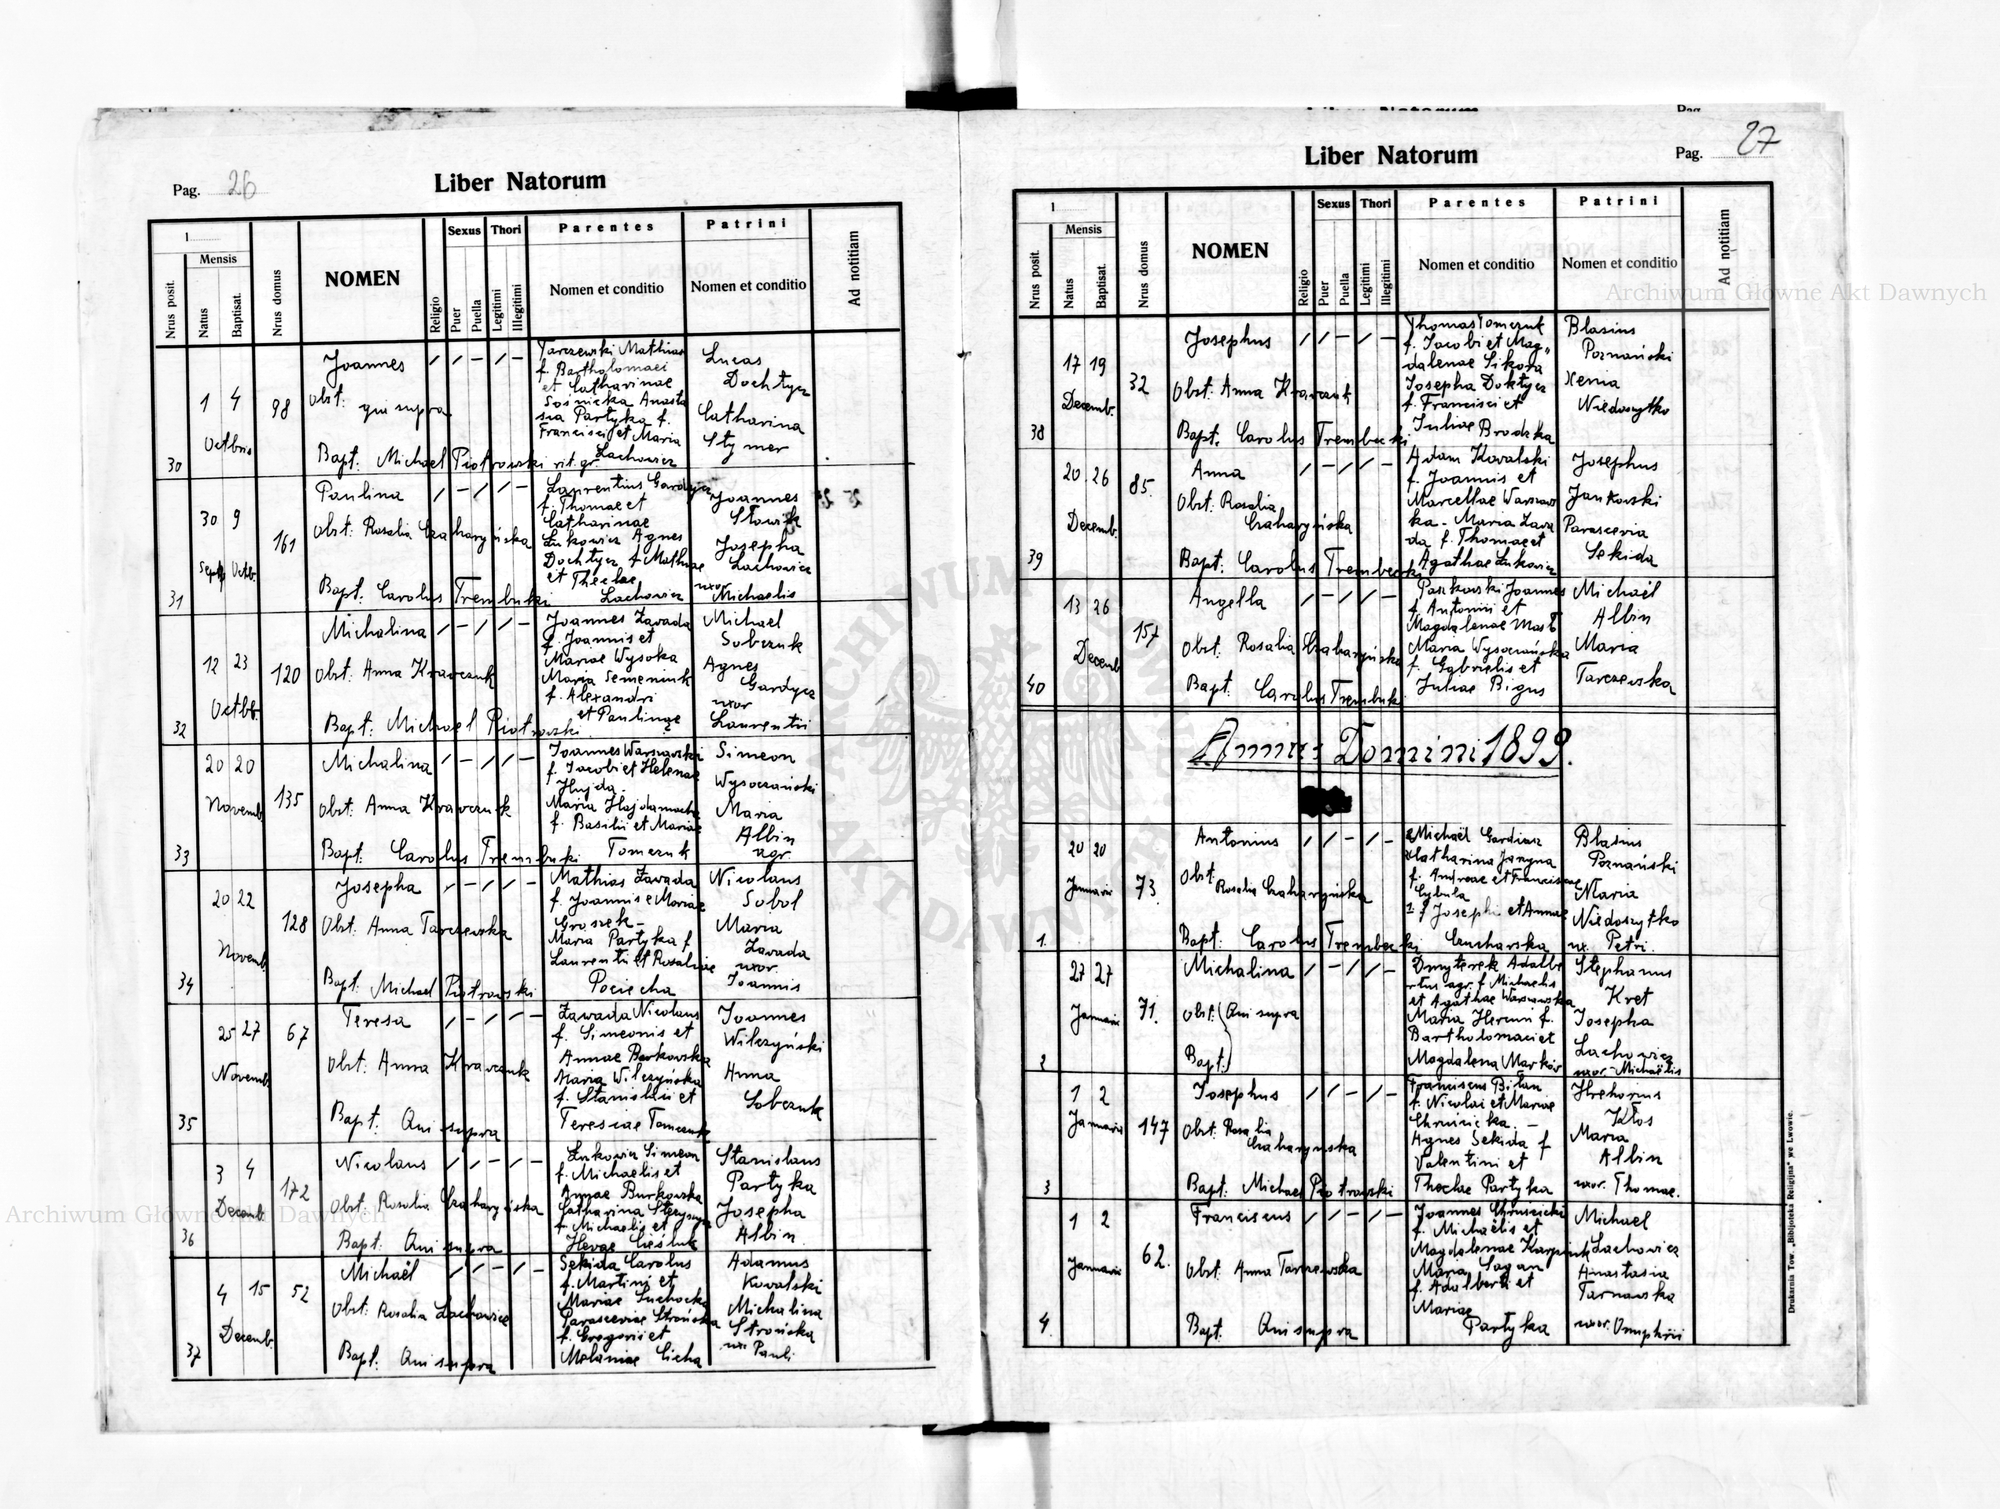 Pag. 26
Liber Natorum
1
Mensis
Nrus posit.
Natus
Baptisat.
Nrus domus
NOMEN
Religio
Sexus
Puer
Puella
Thori
Legitimi
Illegitimi
Parentes
Nomen et conditio
Patrini
Nomen et conditio
Ad notitiam
30
1 4
Octbris
98
Joannes
Obst: qui supra
Bapt: Michael Piotrowski rit. gr.
Tarczewski Mathias
f. Bartholomaei
et Catharinae
Sośnicka Anasta
sia Partyka f.
Francisci et Maria
Lachowicz
Lucas
Dochtycz
Catharina
Stymer
31
30 9
Sept. Octb.
161
Paulina
Obst: Rosalia Czaharyńska
Bapt: Carolus Trembecki
Laurentius Gardycz
f. Thomae et
Catharinae
Łukowicz Agnes
Dochtycz f. Mathiae
et Theclae
Lachowicz
Joannes
Słowik
Josepha
Lachowicz
uxor
Michaelis
32
12 23
Octbr.
120
Michalina
Obst: Anna Krawczuk
Bapt: Michael Piotrowski
Joannes Zawada
f. Joannis et
Mariae Wysoka
Maria Semeniuk
f. Alexandri
et Paulinae
Michael
Sobczuk
Agnes
Gardycz
uxor
Laurentii
33
20 20
Novemb.
135
Michalina
Obst: Anna Krawczuk
Bapt: Carolus Trembecki
Joannes Warszawski
f. Jacobi et Helenae
Hujda.
Maria Hajdamacha
f. Basilii et Mariae
Tomczuk
Simeon
Wysoczański
Maria
Albin
agr.
34
20 22
Novemb.
128
Josepha
Obst: Anna Tarczewska
Bapt: Michael Piotrowski
Mathias Zawada
f. Joannis e Mariae
Groszek –
Maria Partyka f
Laurentii et Rosaliae
Pociecha
Nicolaus
Sobol
Maria
Zawada
uxor
Joannis
35
25 27
Novemb.
67
Teresa
Obst: Anna Krawczuk
Bapt: Qui supra
Zawada Nicolaus
f. Simeonis et
Annae Borkowska
Maria Wilczyńska
f. Stanislai et
Teresiae Tomczuk
Joannes
Wilczyński
Anna
Sobczuk
36
3 4
Decemb.
172
Nicolaus
Obst: Rosalia Czaharyńska
Bapt. Qui supra
Łukowicz Simeon
f. Michaelis et
Annae Burkowska
f. Michaelis et
Stanislaus
Partyka
Josepha
Albin
37
4 15
Decemb.
52
Michaël
Obst: Rosalia Lachowicz
Bapt: Qui supra
Sekida Carolus
f. Martini et
Mariae Suchocka
Parasceviae Strońska
f. Gregorii et
Melaniae Cicha
Adamus
Kowalski
Michalina
Strońska
ux. Pauli
Pag. 27
Liber Natorum
1
Mensis
Nrus posit.
Natus
Baptisat.
Nrus domus
NOMEN
Religio
Sexus
Puer
Puella
Thori
Legitimi
Illegitimi
Parentes
Nomen et conditio
Patrini
Nomen et conditio
Ad notitiam
38
17 19
Decemb.
32
Josephus
Obst: Anna Krawczuk
Bapt: Carolus Trembecki
Thomas Tomczuk
f. Jacobi et Mag„
dalenae Sikora
Josepha Doktycz
f. Francisci et
Juliae Brodzka
Blasius
Poznański
Xenia
Niedoszytko
39
20 26
Decemb.
85.
Anna
Obst: Rosalia
Czaharyńska
Bapt: Carolus Trembecki
Adam Kowalski
f. Joannis et
Marcellae Warszaws
ka – Maria Zawa
da f. Thomae et
Agathae Łukowicz
Josephus
Jankowski
Parascevia
Sekida
40
13 26
Decemb.
157
Angella
Obst: Rosalia Czaharyńska
Bapt: Carolus Trembecki
Paszkowski Joannes
f. Antonii et
Magdalenae Mast
Maria Wysoczańska
f. Gabrielis et
Juliae Bigus
Michaël
Albin
Maria
Tarczewska
Annus Domini 1899.
1.
20 20
Januarii
73.
Antonius
Obst:
Rosalia Czaharyńska
Bapt: Carolus Trembecki
Michaël Gardiasz
Catharina Jaryna
f. Andreae et Franciscae
Cybula
f Josephi et Annae
Czucharska
Blasius
Poznański
Maria
Niedoszytko
ux. Petri.
2
27 27
Januarii
71.
Michalina
Obst: Qui supra
Bapt:
Dmyterek Adalbe
rtus agr. f. Michaelis
et Agathae Warszawska
Maria Herman f.
Bartholomaei et
Magdalena Marków
Stephanus
Kret
Josepha
Lachowicz
uxor Michaëlis
3
1 2
Januarii
147
Josephus
Obst: Rosalia
Czaharyńska
Bapt: Michael Piotrowski
Franciscus Bilan
f. Nicolai et Mariae
Agnes Sekida f
Valentini et
Theclae Partyka
Hrehorius
Kłos
Maria
Albin
uxor. Thomae.
4.
1 2
Januarii
62.
Franciscus
Obst: Anna Tarczewska
Bapt. Qui supra
Joannes Chruścicki
f. Michaëlis et
Magdalenae Karpiuk
Maria Sagan
f. Adalberti et
Mariae
Partyka
Michael
Lachowicz
Anastasia
Tarnawska
uxor. Onuphrii
Drukarnia Tow. „Bibljoteka Religijna" we Lwowie.
Archiwum Główne Akt Dawnych
Archiwum Główne Akt Dawnych
ARCHIWUM GŁÓWNE AKT DAWNYCH